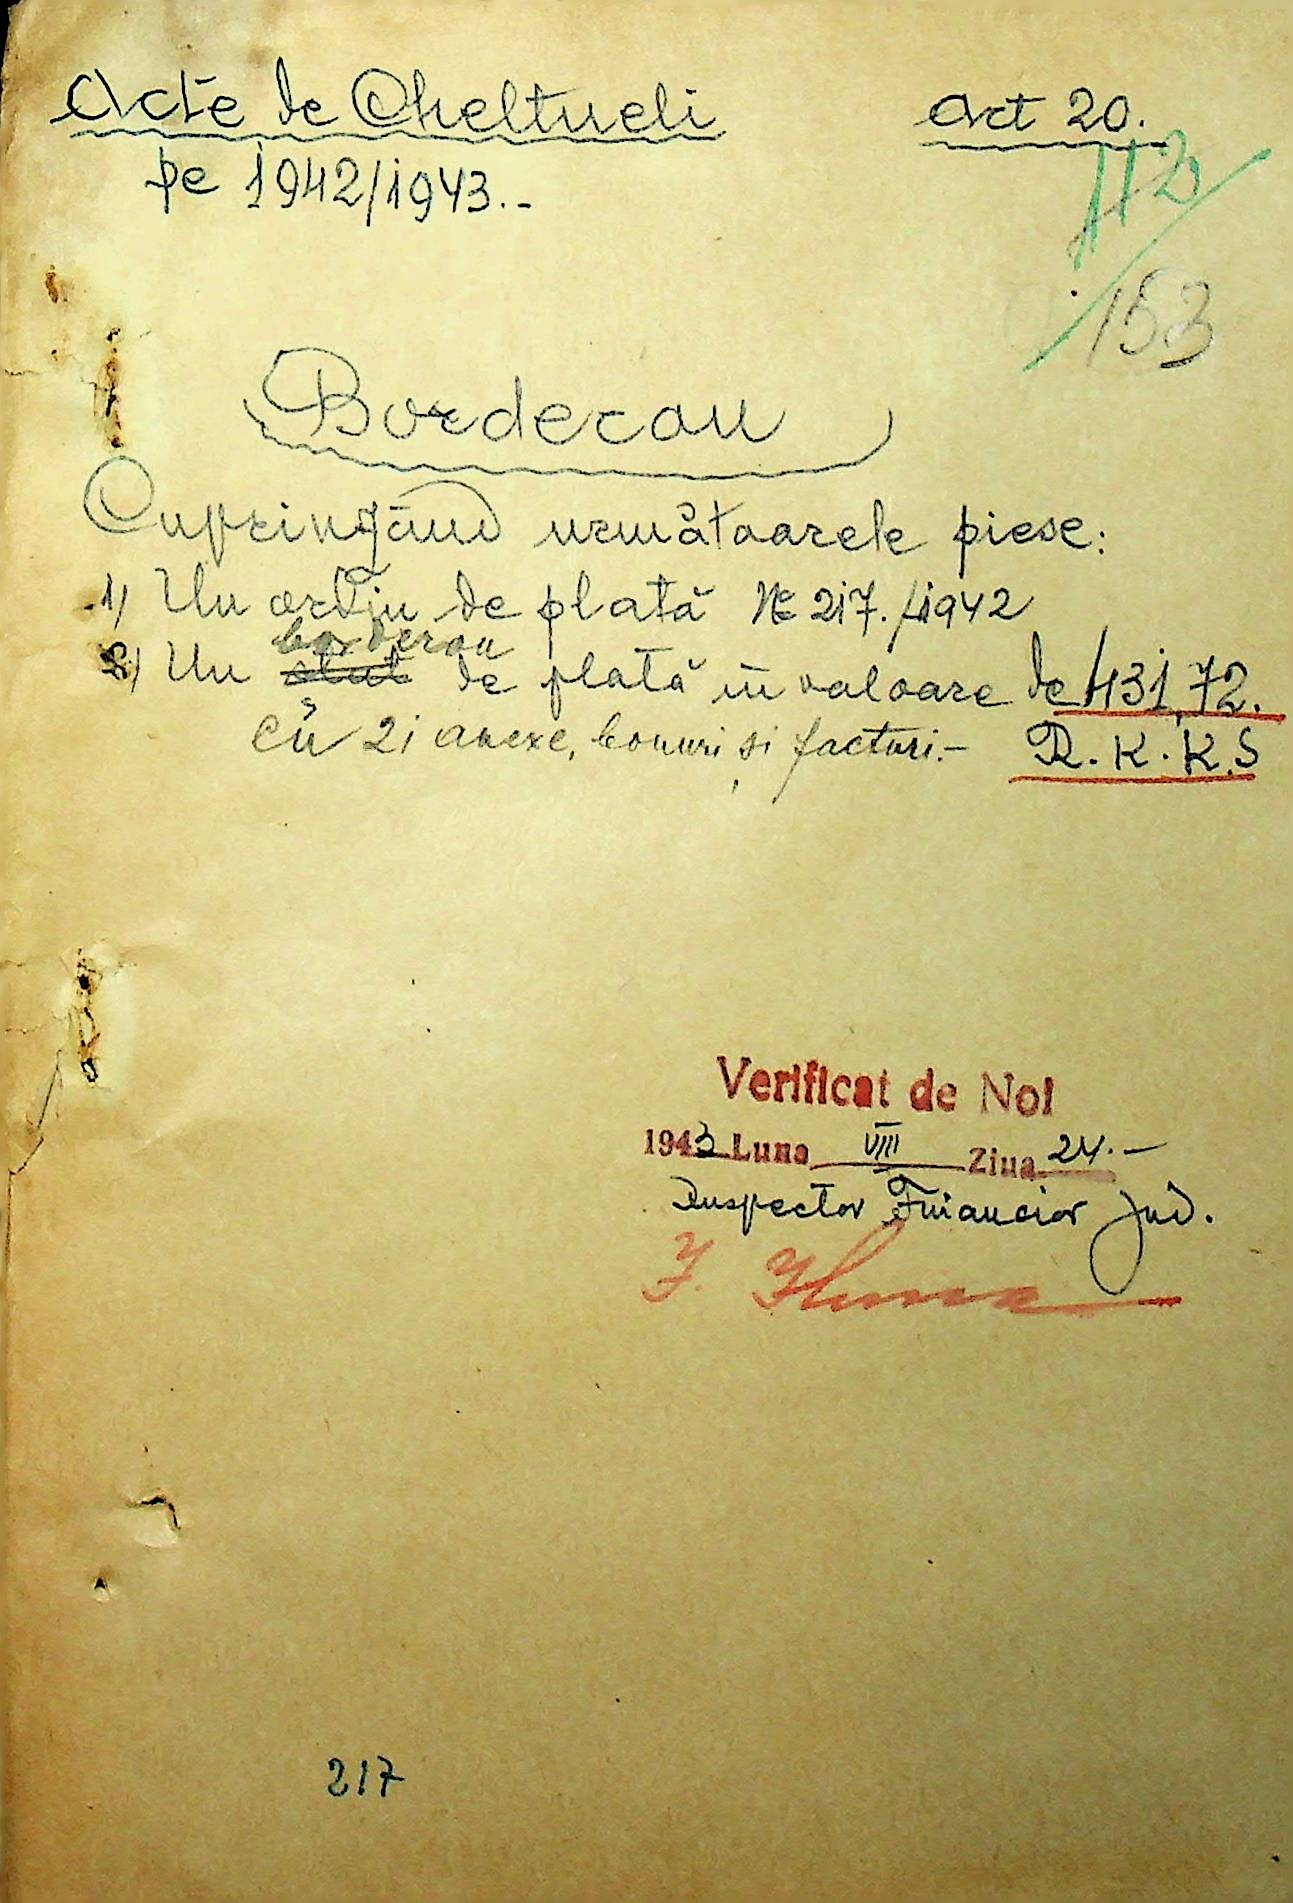 Acte de Cheltueli
Art 20.
pe 1942/1943.-
112
153
Borderou
Cuprinzând următoarele piese:
1) Un ordin de plată № 217./1942
borderou
2) Un stat de plată în valoare de 431,72.
cu 21 anexe, bonuri și facturi.- R.K.K.S
Verificat de Noi
1943 Luna VIII Ziua 24.-
Inspector Financiar Jud.
217